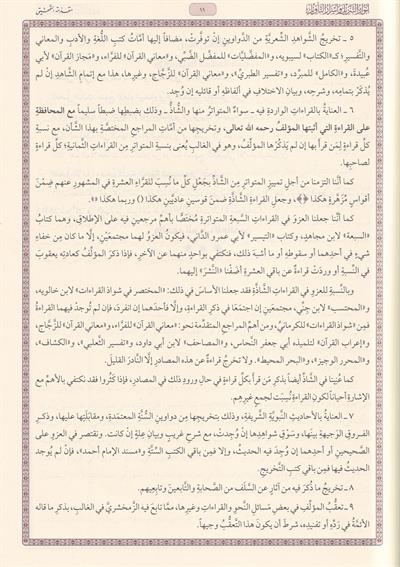 مقدمة التحقيق
١١
٥ ـ تخريجُ الشَّواهدِ الشعريَّةِ من الدَّواوينِ إنْ توفَّرتْ، مضافاً إليها أمَّاتُ كتبِ اللُّغةِ والأدبِ والمعاني
والتَّفسيرِ؛ كـ«الكتاب» لسيبويه، و«المفضَّليَّات» للمفضَّل الضَّبِّي، و«معاني القرآن» للفرَّاء، و«مَجاز القرآن» لأبي
عُبيدة، و«الكامل» للمبرِّد، و«تفسير الطبريِّ»، و«معاني القرآن» للزَّجَّاج، وغيرها، هذا مع إتمامِ الشَّاهدِ إنْ لم
يُذْكَرْ بتمامِه، وشرحِه، وبيانِ الاختلافِ في ألفاظِه أو قائلِه إن وُجِد.
٦ ـ العنايةُ بالقراءاتِ الواردةِ فيه ـ سواءٌ المتواترُ منها والشَّاذُّ ـ وذلك بضبطِها ضبطاً سليماً مع المحافظةِ
على القراءةِ التي أثبتَها المؤلِّفُ رحمه الله تعالى، وتخريجِها من أمَّاتِ المراجعِ المختصَّةِ بهذا الشَّأن، مع نسبةِ
كلِّ قراءةٍ لِمَن قرأ بها إن لم يَذْكُرْها المؤلِّفُ، وهو في الغالبِ يُعنَى بنسبةِ المتواترِ مِن القراءاتِ الثَّمانيةِ؛ كلُّ قراءةٍ
لصاحبِها.
كما أنَّنا التزمنا من أجلِ تمييزِ المتواترِ مِن الشَّاذِّ بجَعْلِ كلِّ ما نُسِبَ للقرَّاءِ العشرةِ في المشهورِ عنهم ضِمْنَ
أقواسٍ مُزَهَّرةٍ هكذا ﴿ ﴾، وجعلِ القراءةِ الشَّاذَّةِ ضمنَ قوسينِ عاديَّينِ هكذا () وربما هكذا «».
كما أنَّنا جعلنا العزوَ في القراءاتِ السَّبعةِ المتواترةِ مُختَصًّا بأهمِّ مرجعينِ فيه على الإطلاقِ، وهما كتابُ
«السبعة» لابن مجاهدٍ، وكتاب «التَّيسير» لأبي عمرو الدَّاني، فيكونُ العزوُ لهما مجتمعَيْنِ، إلَّا ما كان مِن خفاءِ
شيءٍ في أحدِهما أو سقوطِه أو ما أشبهَ ذلك، فنكتفي بواحدٍ منهما عن الآخرِ، فإذا ذكرَ المؤلِّفُ كعادتِه يعقوبَ
في النِّسبةِ أو وردَتْ قراءةٌ عن باقي العشرةِ أضَفْنا «النَّشْرَ» إليهما.
وبالنِّسبةِ للعزوِ في القراءاتِ الشَّاذَّةِ فقد جعلنا الأساسَ في ذلك: «المختصر في شواذ القراءات» لابن خالويه،
و«المحتسب» لابن جِنِّي، مجتمعَينِ إن اجتمعَا في ذكرِ القراءةِ، وإلَّا فأحدُهما إن انفردَ، فإن لم تُوجدْ فيهما القراءةُ
فمِن «شواذ القراءات» للكرمانيِّ، ومن أهمِّ المراجعِ المتقدِّمةِ نحو: «معاني القرآن» للفرَّاء، و«معاني القرآن» للزَّجَّاج،
و«إعراب القرآن» لتلميذه أبي جعفر النَّحاس، و«المصاحف» لابن أبي داود، و«تفسير الثعلبي»، و«الكشاف»،
و«المحرر الوجيز»، و«البحر المحيط». ولا تخرجُ قراءةٌ عن هذه المصادرِ إلَّا النَّادرَ القليلَ.
كما عُنِينا في الشَّاذِّ أيضاً بذكرِ مَن قرأ بكلِّ قراءةٍ في حالِ ورودِ ذلك في المصادرِ، فإذا كثُروا فقد نكتفي بالأهمِّ مع
الإشارةِ أحياناً لكونِ القراءةِ نُسِبَتْ لجمعٍ غيرِهم.
٧ ـ العنايةُ بالأحاديثِ النَّبويَّةِ الشَّريفةِ، وذلك بتخريجِها مِن دواوينِ السُّنَّةِ المعتمَدَةِ، ومقابلَتِها عليها، وذكرِ
الفروقِ الوجيهةِ بينَها، وسَوْقِ شواهدِها إنْ وُجِدتْ، مع شرحِ غريبٍ وبيانِ علَّةٍ إنْ كانت. ونقتصرُ في العزوِ على
الصَّحيحَينِ أو أحدِهما إن وُجدَ فيه الحديثُ، وإلا فمِن باقي الكتبِ السِّتَّةِ و«مسند الإمام أحمد»، فإنْ لم يُوجدِ
الحديثُ فيها فمِن باقي كتبِ التَّخريجِ.
٨ ـ تخريجُ ما ذُكرَ فيه من آثارٍ عن السَّلَفِ من الصَّحابةِ والتَّابعينَ وتابعِيهم.
٩ ـ تعقُّبُ المؤلِّفِ في بعضِ مسائلِ النَّحوِ والقراءاتِ وغيرِها، ممَّا تابعَ فيه الزَّمخشريَّ في الغالبِ، بذكرِ ما قاله
الأئمَّةُ في ردِّهِ أو تفنيدِه، شرطَ أن يكونَ هذا التَّعقُّبُ وجيهاً.